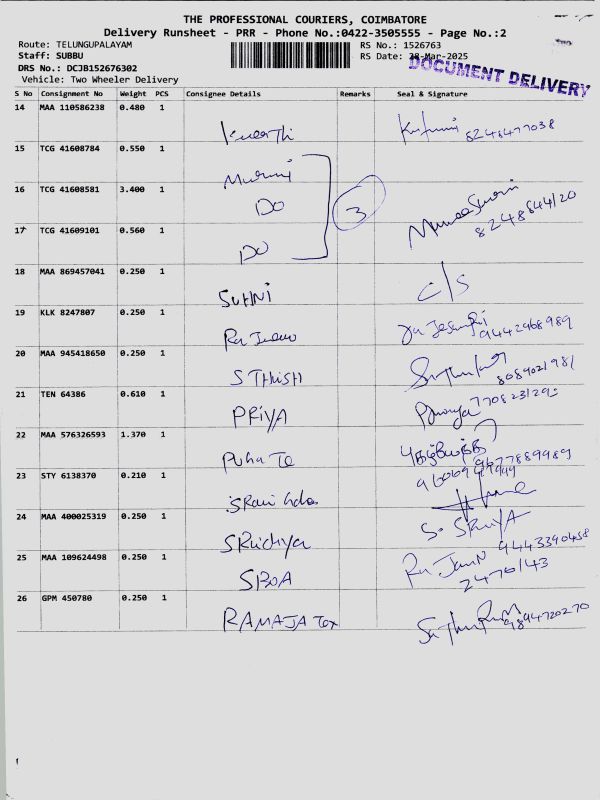 THE PROFESSIONAL COURIERS, COIMBATORE
Delivery Runsheet - PRR - Phone No.:0422-3505555 - Page No.:2
Route: TELUNGUPALAYAM
Staff: SUBBU
DRS No.: DCJB152676302
Vehicle: Two Wheeler Delivery
RS No.: 1526763
RS Date: 28-Mar-2025
DOCUMENT DELIVERY
S No Consignment No Weight PCS Consignee Details Remarks Seal & Signature
14 MAA 110586238 0.480 1
8248477038
15 TCG 41608784 0.550 1
16 TCG 41608581 3.400 1
DO 3
8248644120
17 TCG 41609101 0.560 1
DO
18 MAA 869457041 0.250 1
SUHNI C/S
19 KLK 8247807 0.250 1
9442968989
20 MAA 945418650 0.250 1
STHISH 8089021981
21 TEN 64386 0.610 1
PRIYA
22 MAA 576326593 1.370 1
9677889989
23 STY 6138370 0.210 1
24 MAA 400025319 0.250 1
S. SRUYA
25 MAA 109624498 0.250 1
9443390458
2470143
26 GPM 450780 0.250 1
RAMAJA Tex 9894720270